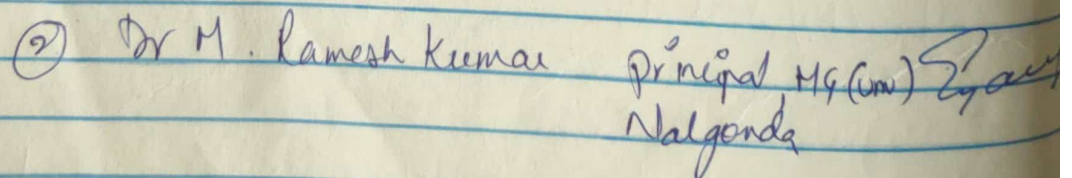 ② Dr M. Ramesh Kumar Principal MG (Univ)
Nalgonda